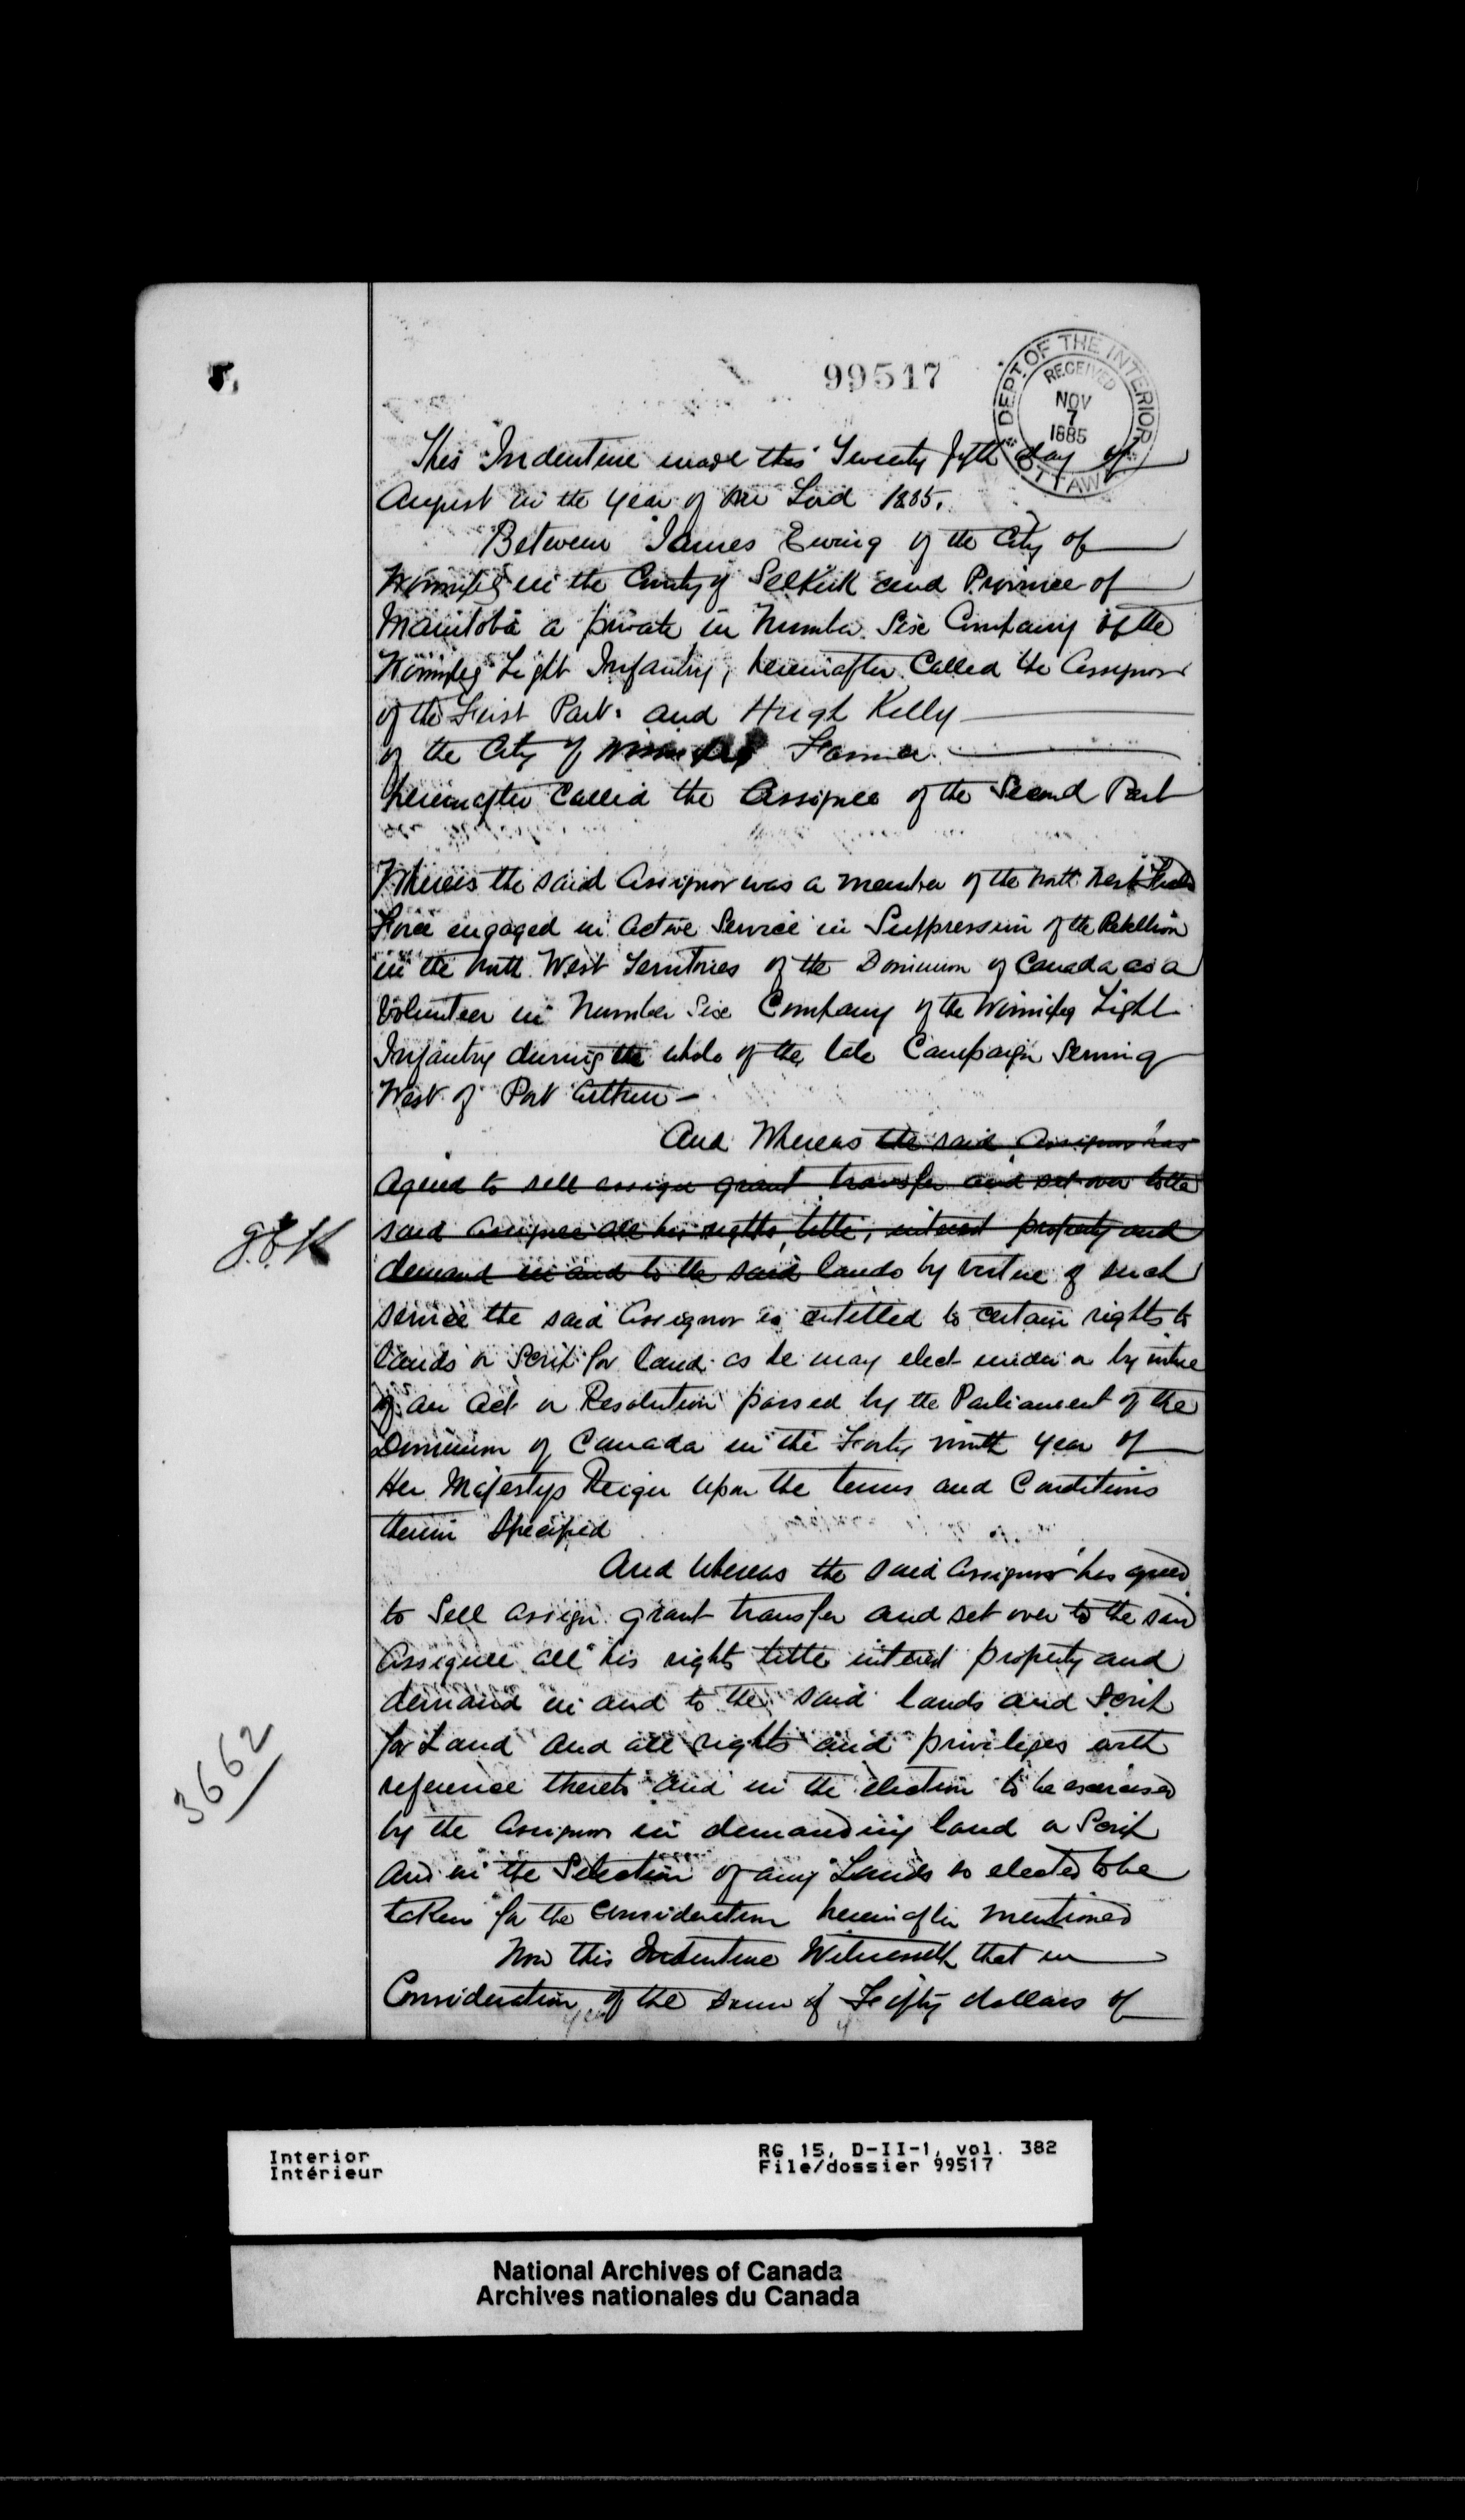 99517
DEPT. OF THE INTERIOR
OTTAWA
RECEIVED
NOV
7
1885
This Indenture made this Twenty fifth day of
August in the year of our Lord 1885.
Between James Ewing of the City of
Winnipeg in the County of Selkirk and Province of
Manitoba a private in Number Six Company of the
Winnipeg Light Infantry, hereinafter Called the Assignor
of the First Part. and Hugh Kelly
of the City of Winnipeg Farmer.
hereinafter Called the Assignee of the Second Part
Whereas the said Assignor was a member of the North West Field
Force engaged in Active Service in Suppression of the Rebellion
in the North West Territories of the Dominion of Canada as a
Volunteer in Number Six Company of the Winnipeg Light
Infantry during the whole of the late Campaign Serving
West of Port Arthur —
And Whereas the said Assignor has
Agreed to sell assign grant transfer and set over to the
said Assignee all his rights, title, interest property and
J.E.K
demand in and to the said lands by virtue of such
service the said Assignor is entitled to certain rights to
lands or Scrip for land as he may elect under or by virtue
of an Act or Resolution passed by the Parliament of the
Dominion of Canada in the Forty ninth year of
Her Majestys Reign upon the terms and Conditions
therein Specified
And Whereas the said Assignor has agreed
to Sell assign grant transfer and set over to the said
Assignee all his rights title interest property and
demand in and to the said lands and Scrip
for Land and all rights and privileges with
reference thereto and in the election to be exercised
3662
by the Assignor in demanding land or Scrip
and in the Selection of any Lands so elected to be
taken for the Consideration hereinafter mentioned
Now this Indenture Witnesseth that in
Consideration of the sum of Fifty dollars of
Interior
Intérieur
RG 15, D-II-1, vol. 382
File/dossier 99517
National Archives of Canada
Archives nationales du Canada